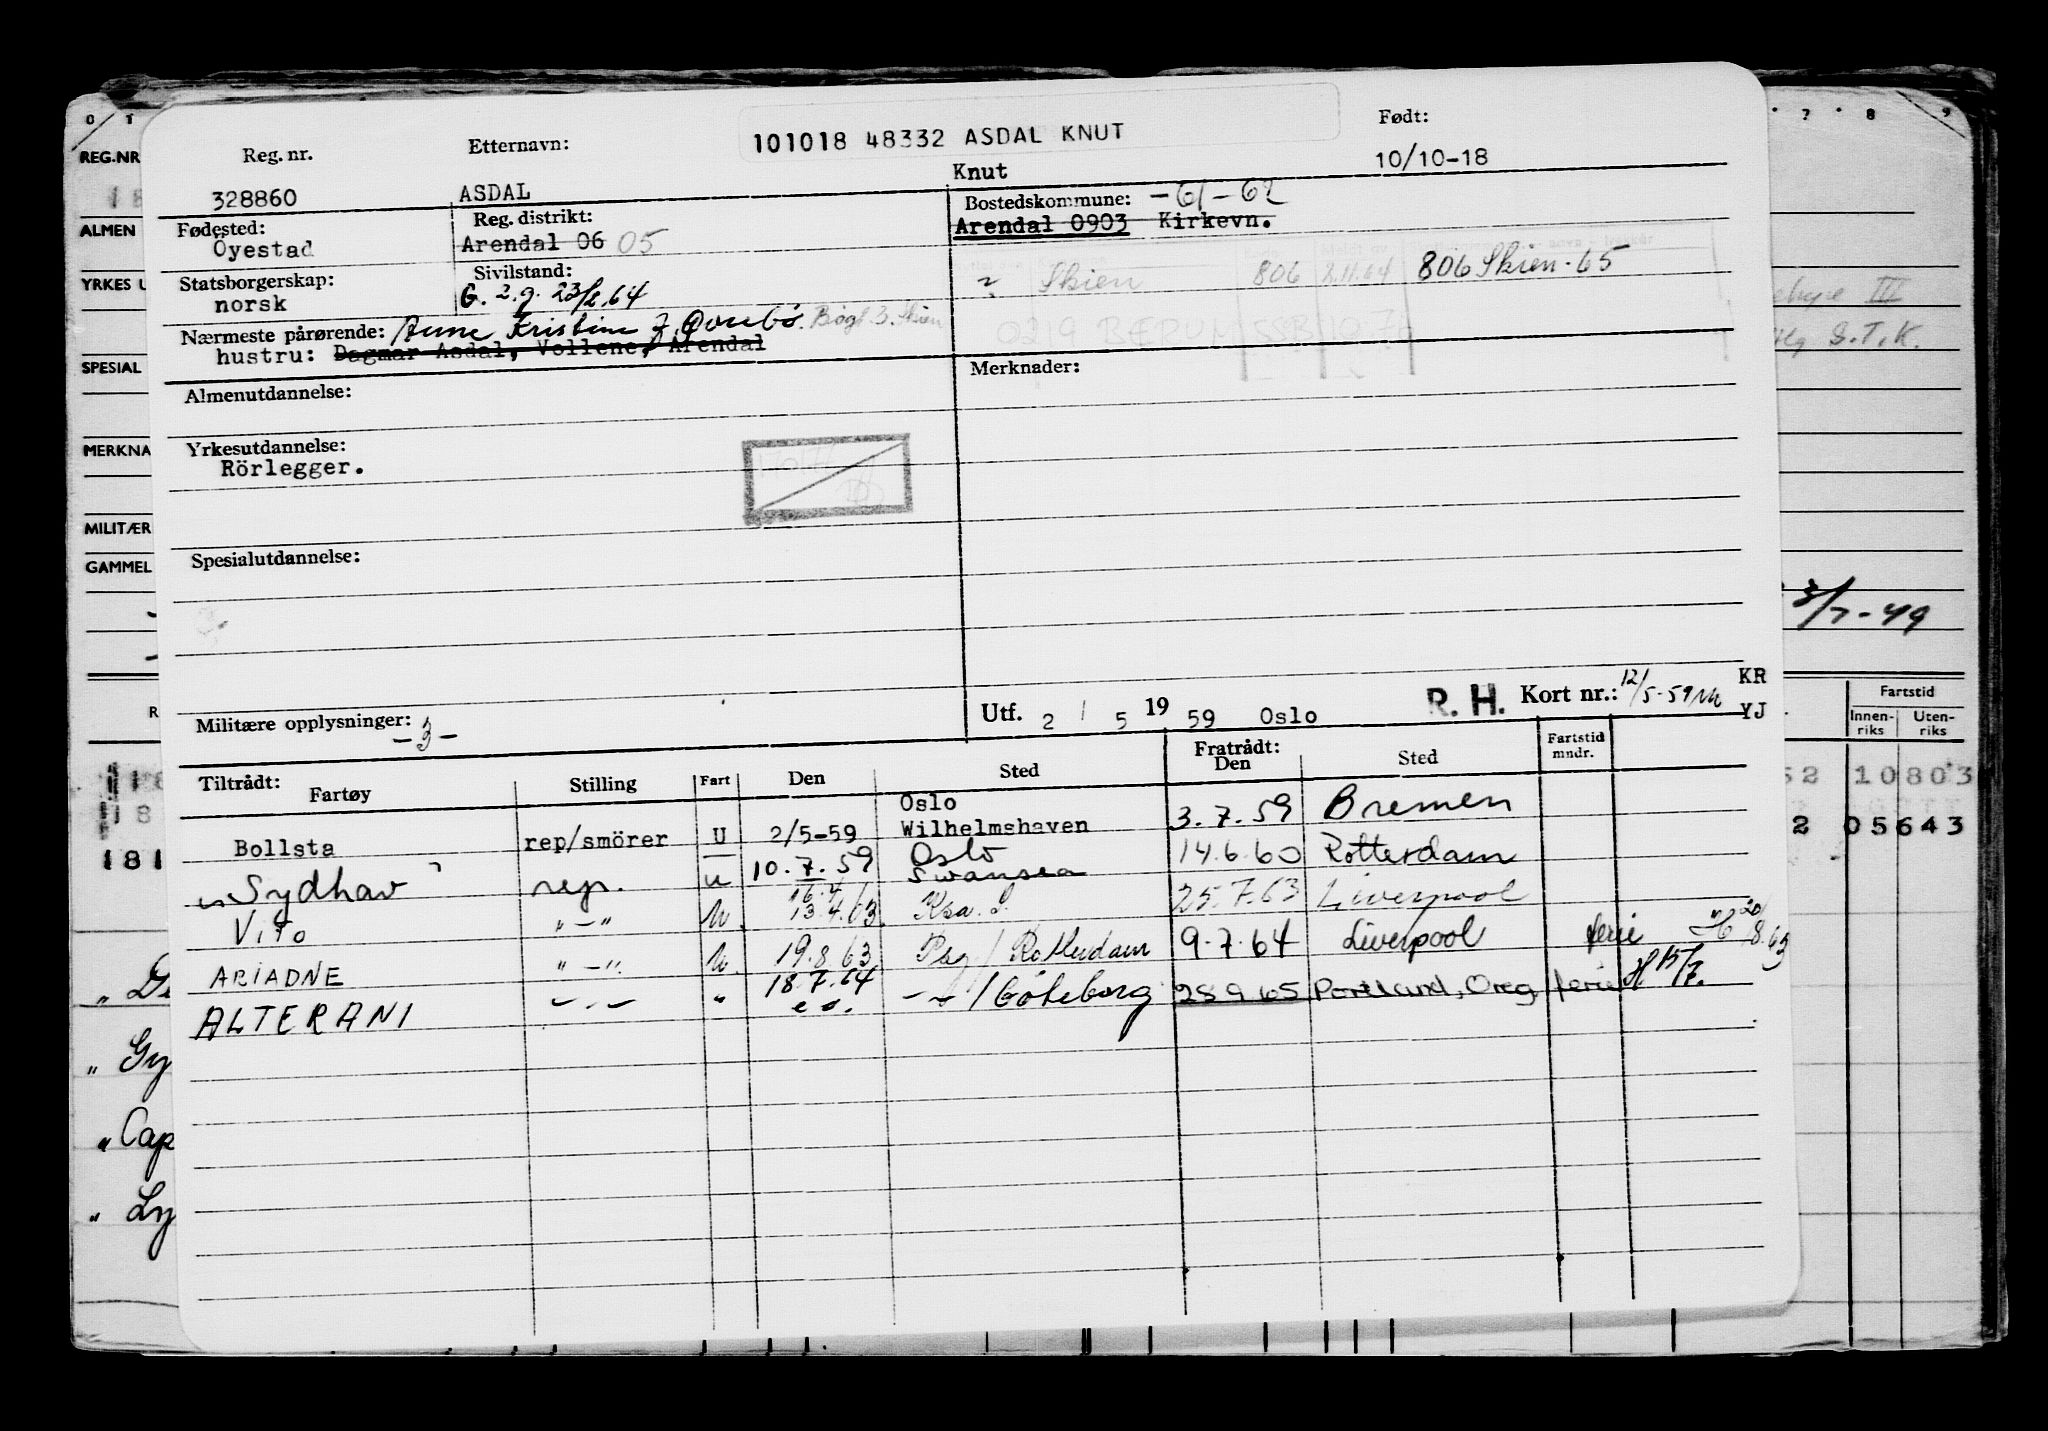 101018 48332 ASDAL KNUT
Reg. nr. Etternavn: Født:
328860 ASDAL Knut 10/10-18
Fødested: Reg. distrikt: Bostedskommune: -61-62
Öyestad Arendal 06 05 Arendal 0903 Kirkevn.
Statsborgerskap: Sivilstand: Skien 806 2.11.64 806 Skien-65
norsk G. 2. g. 23/2.64
Nærmeste pårørende: Anne Kristine f. 3. Skien
0219 BÆRUM SSB 197
hustru: Dagmar Asdal, Vollene, Arendal
Almenutdannelse: Merknader:
Yrkesutdannelse:
Rörlegger.
Spesialutdannelse:
Militære opplysninger: -3- Utf. 2 / 5 19 59 Oslo R. H. Kort nr.: 12/5-59 KR
YJ
Tiltrådt: Fratrådt:
Fartøy Stilling Fart Den Sted Den Sted Fartstid mndr.
Bollsta rep/smörer U 2/5-59 Oslo Wilhelmshaven 3.7.59 Bremen
Sydhav rep. u 10.7.59 Oslo Swansea 14.6.60 Rotterdam
Vito "-" U. 16.4/ 13.4.63 Ksa. S. 25.7.63 Liverpool
ARIADNE "-" U. 19.8.63 Psg / Rotterdam 9.7.64 Liverpool ferie H 20/8.63
ALTERANI -"- " 18.7.64 e.o. -"- / Göteborg 28 9 65 Portland, Oreg. ferie H 15/7.
O 1 7 8 9
REG.NR
ALMEN
YRKES U
SPESIAL
MERKNA
MILITÆR
GAMMEL
III
S.T.K.
3/7-49
Fartstid
Innen-riks Uten-riks
52 10803
2 05643
181
" Gy
" Cap
" Ly